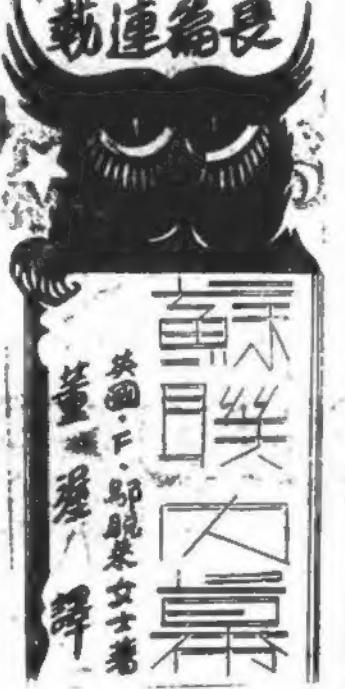 長篇連載
蘇聯內幕
英國·F·鄔脫萊女士著
董 譯